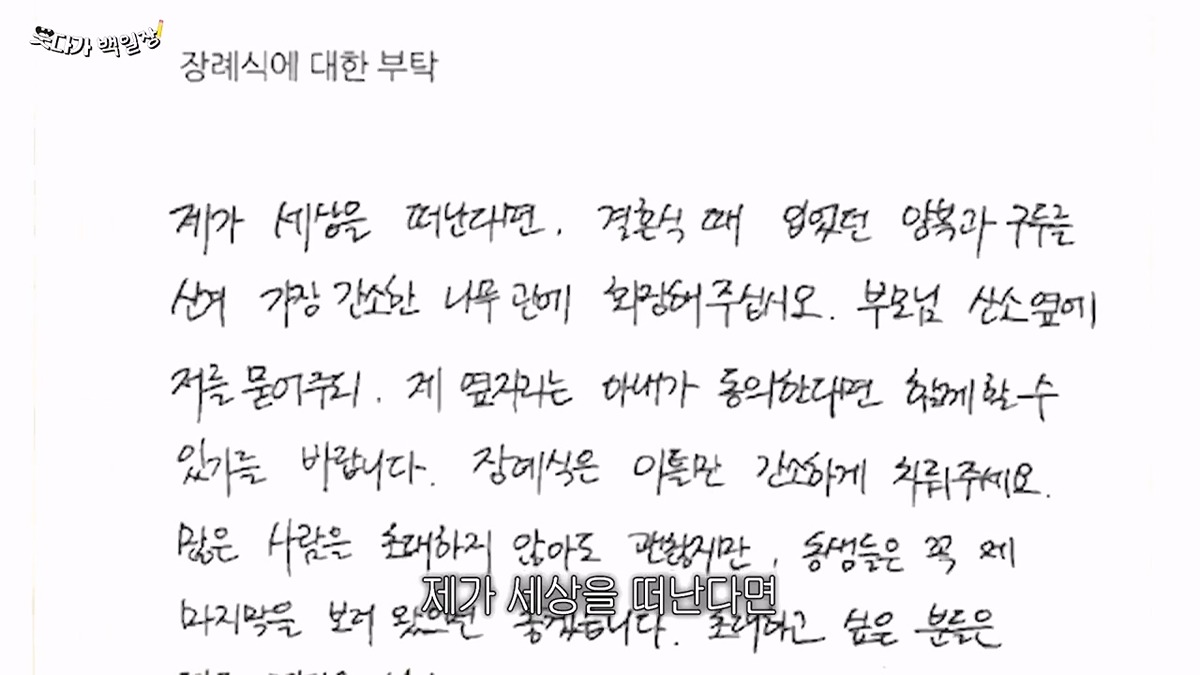 웃다가 백일장
장례식에 대한 부탁
제가 세상을 떠난다면, 결혼식 때 입었던 양복과 구두를
신겨 가장 간소한 나무 관에 화장해 주십시오. 부모님 산소 옆에
저를 묻어주되, 제 옆자리는 아내가 동의한다면 함께 할 수
있기를 바랍니다. 장례식은 이틀만 간소하게 치뤄주세요.
많은 사람을 초대하지 않아도 괜찮지만, 동생들은 꼭 제
마지막을 보러 왔으면 좋겠습니다. 초대하고 싶은 분들은
제가 세상을 떠난다면